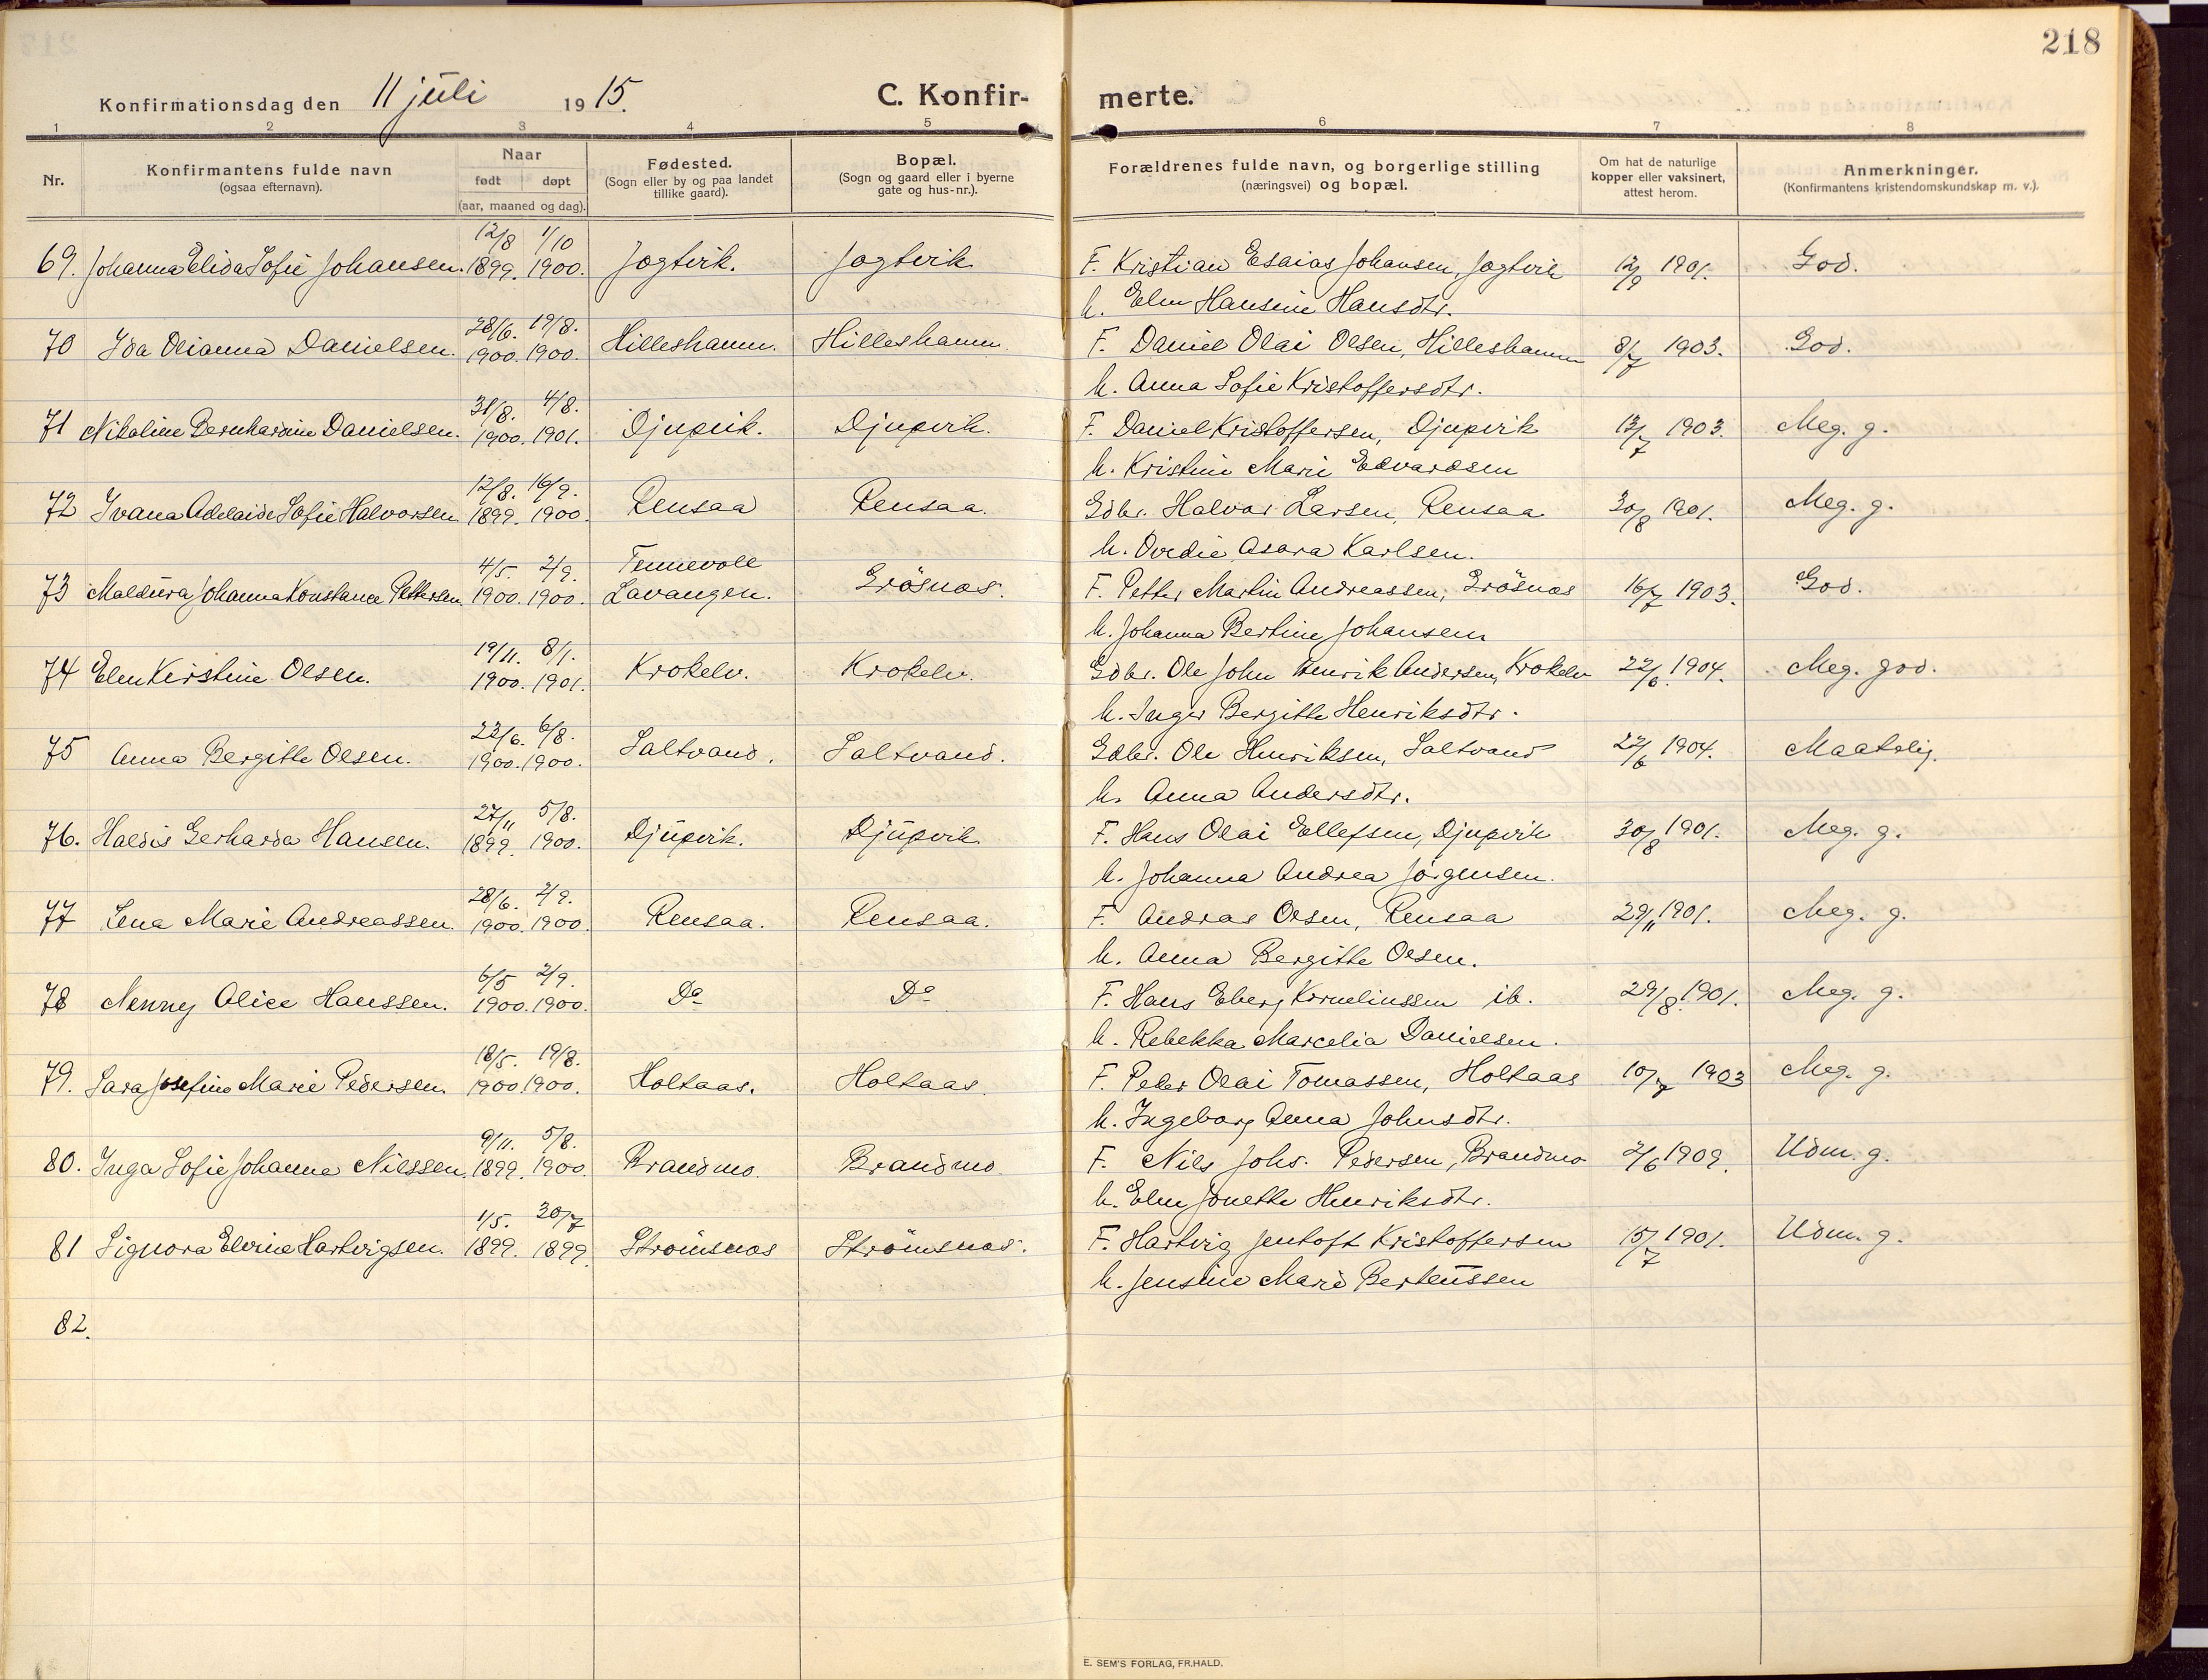 218
Konfirmationsdag den 11 juli 1915. C. Konfir- merte.
1 2 3 4 5 6 7 8
Nr. Konfirmantens fulde navn (ogsaa efternavn). Naar født døpt (aar, maaned og dag). Fødested. (Sogn eller by og paa landet tillike gaard). Bopæl. (Sogn og gaard eller i byerne gate og hus-nr.). Forældrenes fulde navn, og borgerlige stilling (næringsvei) og bopæl. Om hat de naturlige kopper eller vaksinert, attest herom. Anmerkninger. (Konfirmantens kristendomskundskap m. v.).
12/8 1/10
69. Johanna Elida Sofie Johansen. 1899. 1900. Jogtvik. Jogtvik F. Kristian Esaias Johansen, Jogtvik 12/9 1901. God.
h. Elen Hansine Hansdtr.
28/6. 19/8.
70 Ida Olianna Danielsen. 1900. 1900. Hilleshamn. Hilleshamn. F. Daniel Olai Olsen, Hilleshamn 8/7 1903. God.
h. Anna Sofie Kristoffersdtr.
31/8. 4/8.
71 Nikoline Bernhardine Danielsen. 1900. 1901. Djupvik. Djupvik. F. Daniel Kristoffersen, Djupvik 13/7 1903. Meg. g.
h. Kristine Marie Edvardsen
12/8. 16/9.
72 Ivana Adelaide Sofie Halvorsen 1899. 1900. Rensaa Rensaa. Gdbr. Halvor Larsen, Rensaa 30/8 1901. Meg. g.
h. Ovedie Asara Karlsen.
4/5. 2/9. Tennevoll
73 Maldura Johanna Konstance Pettersen 1900. 1900. Lavangen. Grösnes. F. Petter Martin Andreassen, Grösnes 16/7 1903. God.
h. Johanna Bertine Johansen
19/11. 8/1.
74 Elen Kirstine Olsen. 1900. 1901. Krokelv. Krokelv. Gdbr. Ole John Henrik Andersen, Krokelv 22/6 1904. Meg. god.
h. Inger Bergitte Henriksdtr.
22/6. 6/8.
75 Anna Bergitte Olsen. 1900. 1900. Saltvand. Saltvand. Gdbr. Ole Henriksen, Saltvand 22/6 1904. Maatelig.
h. Anna Andersdtr.
27/11 5/8.
76. Haldis Gerharda Hansen. 1899. 1900. Djupvik. Djupvik F. Hans Olai Ellefsen, Djupvik 30/8 1901. Meg. g.
h. Johanna Andrea Jörgensen.
28/6. 2/9.
77 Lena Marie Andreassen. 1900. 1900. Rensaa. Rensaa. F. Andreas Olsen, Rensaa 29/11 1901. Meg. g.
h. Anna Bergitte Olsen.
6/5 2/9.
78 Nenny Alice Hanssen. 1900. 1900. Do Do F. Hans Eberg Korneliussen ib. 29/8. 1901. Meg. g.
h. Rebekka Marcelia Danielsen.
18/5. 19/8.
79. Sara Josefine Marie Pedersen. 1900. 1900. Holtaas. Holtaas. F. Peder Olai Tomassen, Holtaas 10/7 1903 Meg. g.
h. Ingeborg Anna Johnsdtr.
9/11. 5/8.
80. Inga Sofie Johanne Nilssen. 1899. 1900. Brandmo. Brandmo F. Nils Johs. Pedersen, Brandmo 2/6 1909. Udm. g.
h. Elen Jonette Henriksdtr.
1/5. 30/7
81 Signora Elvine Hartvigsen. 1899. 1899. Strömsnes Strömsnes. F. Hartvig Jentoft Kristoffersen 15/7 1901. Udm. g.
h. Jensine Marie Berteussen
82.
E. SEM'S FORLAG, FR.HALD.